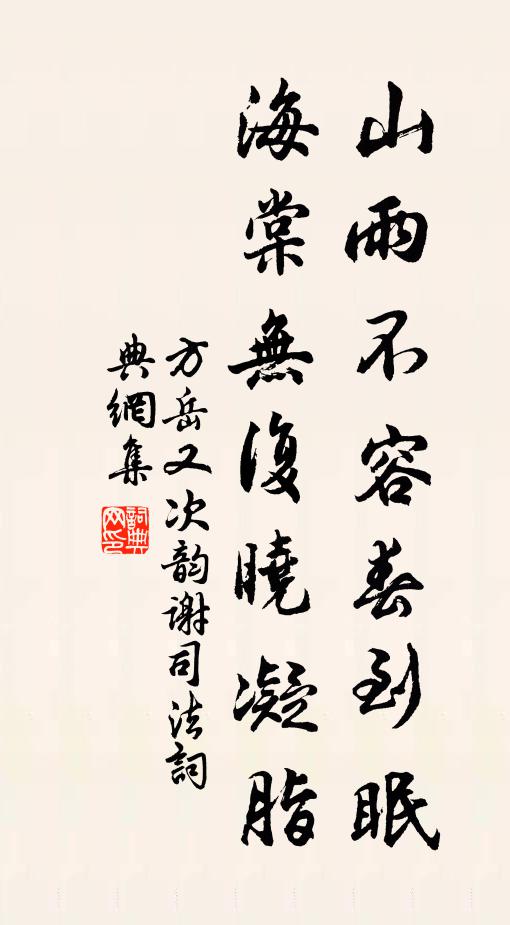 山雨不容春到眠
海棠無復曉凝脂
方岳又次韵謝司法詞
典網集
詞典网印